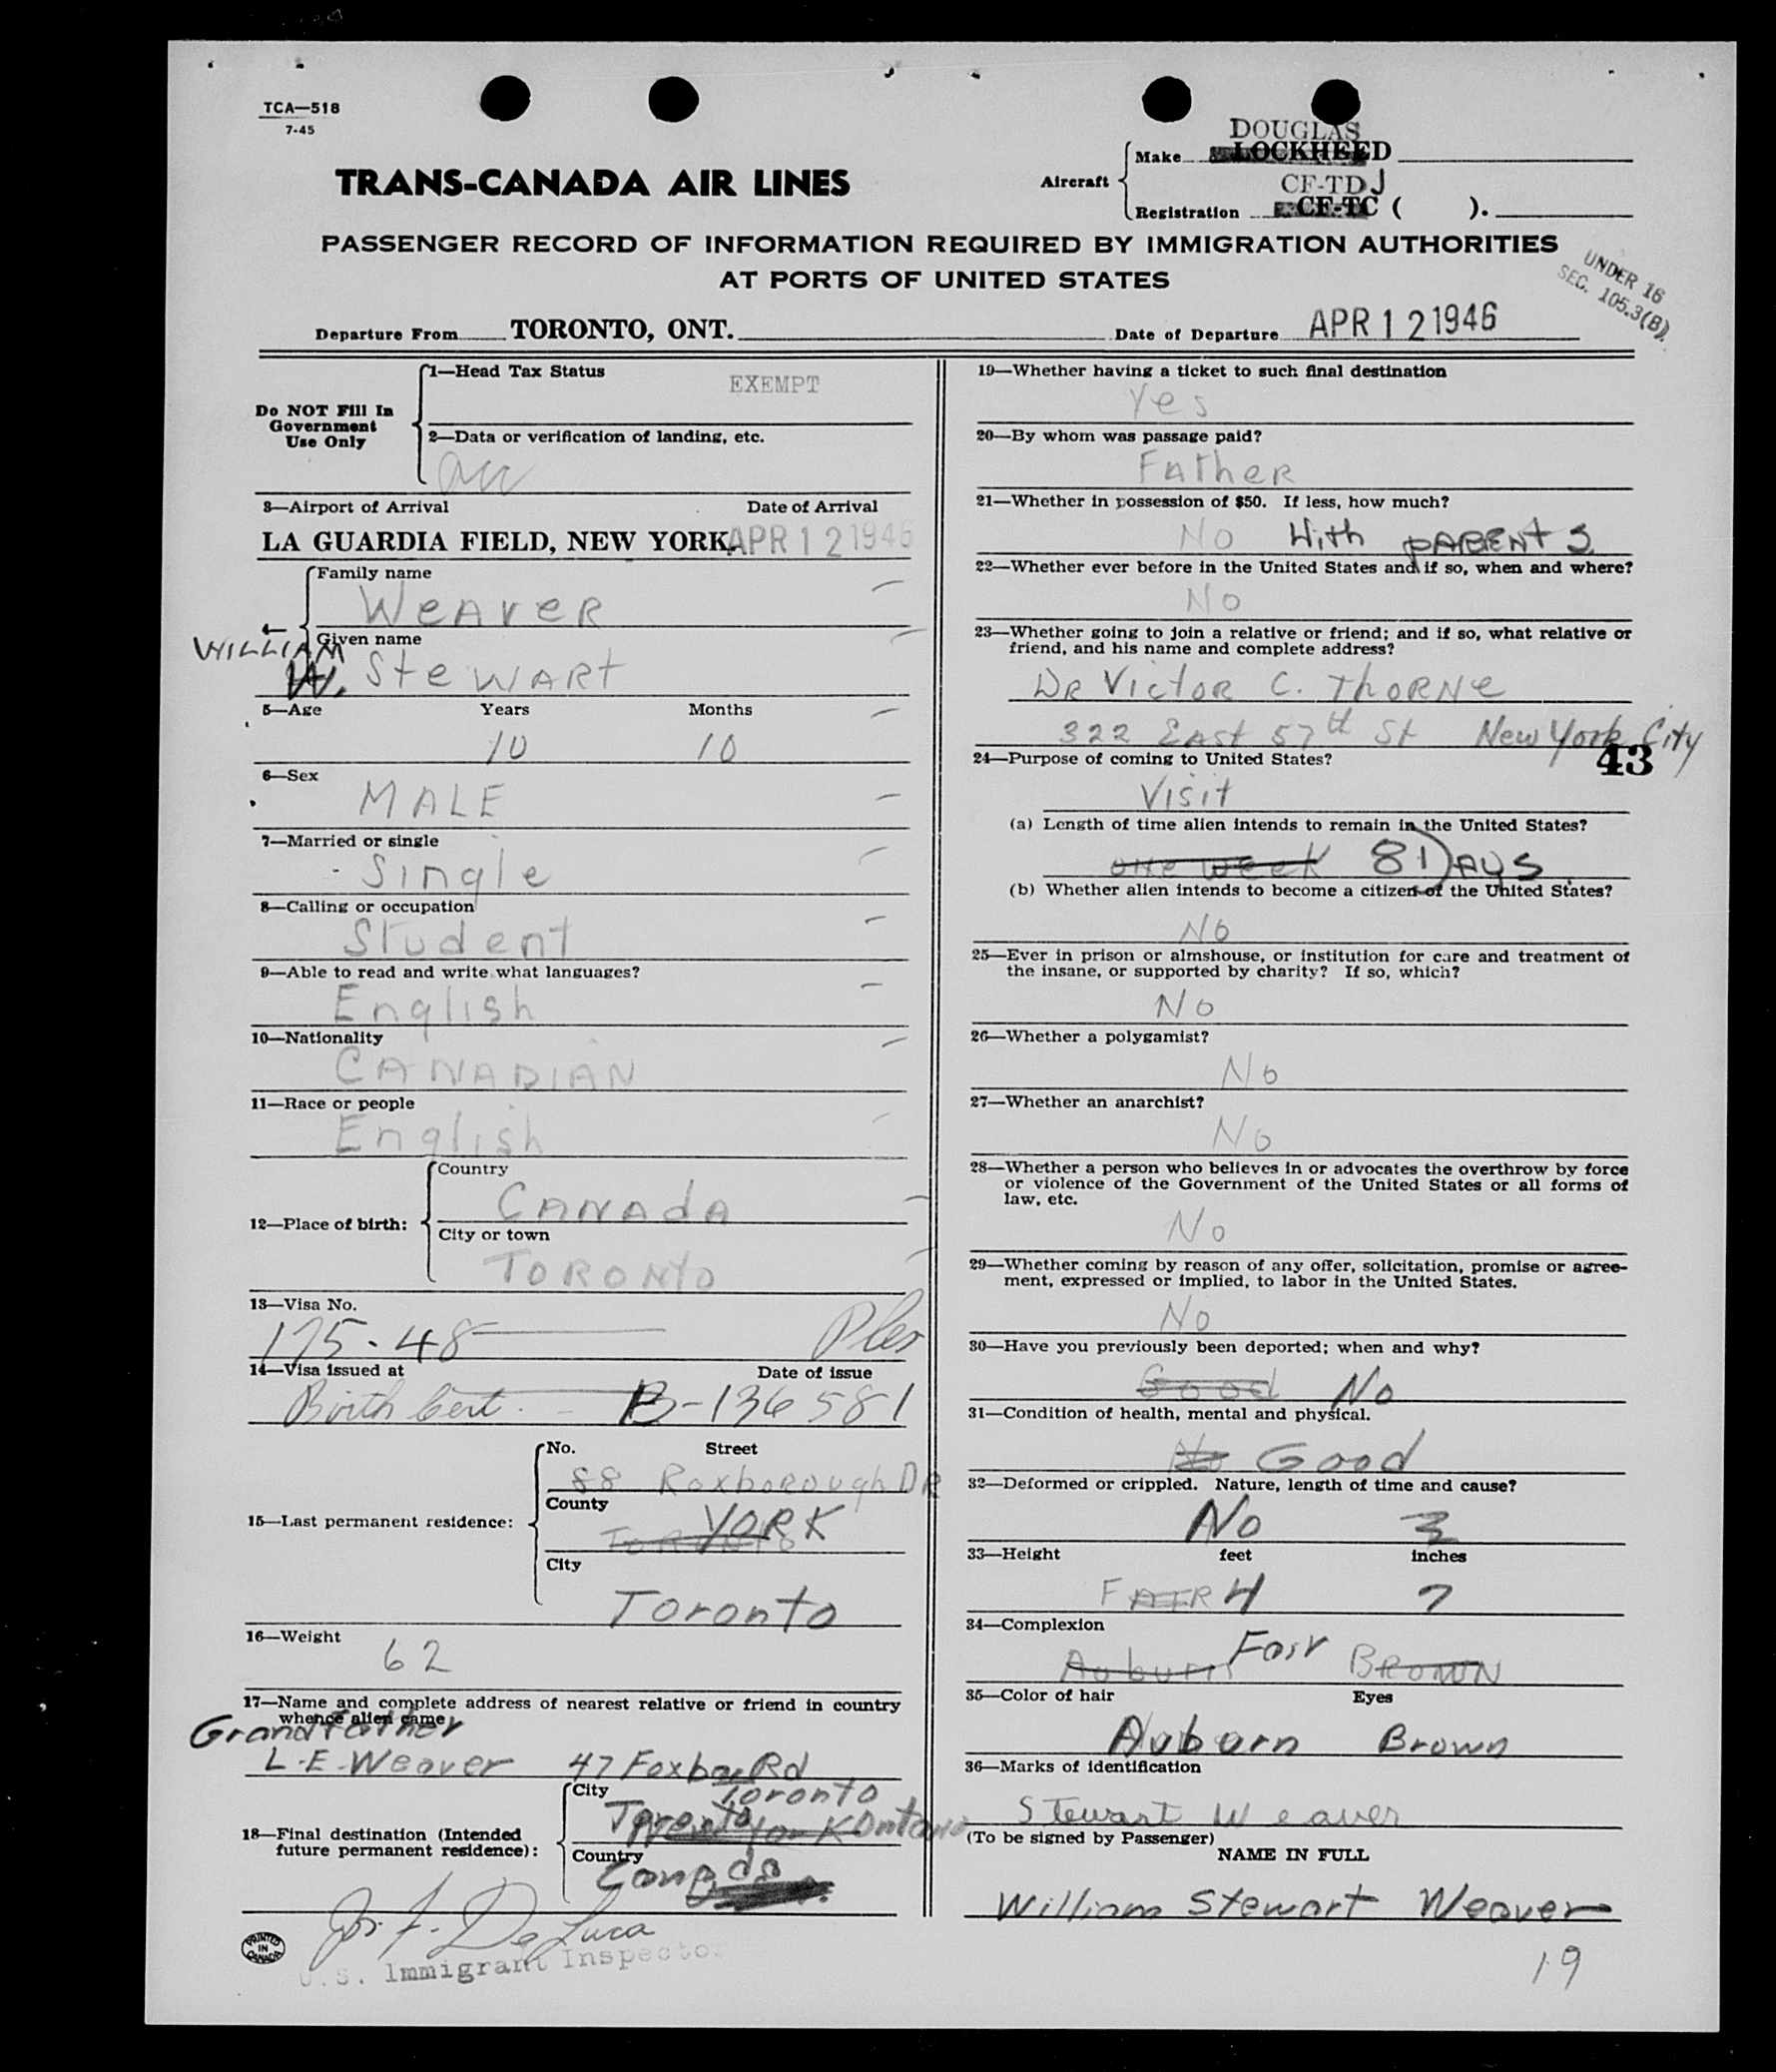 TCA—518
7-45
DOUGLAS
Make LOCKHEED
TRANS-CANADA AIR LINES
Aircraft
CF-TDJ
Registration CF-TC ( ).
PASSENGER RECORD OF INFORMATION REQUIRED BY IMMIGRATION AUTHORITIES
AT PORTS OF UNITED STATES
UNDER 16
SEC. 105.3(B)
Departure From TORONTO, ONT. Date of Departure APR 12 1946
Do NOT Fill In
Government
Use Only
1—Head Tax Status EXEMPT
2—Data or verification of landing, etc.
3—Airport of Arrival Date of Arrival
LA GUARDIA FIELD, NEW YORK APR 12 1946
4—
Family name
WeAveR
Given name
WILLIAM
W. SteWARt
5—Age Years Months
10 10
6—Sex
MALE
7—Married or single
Single
8—Calling or occupation
Student
9—Able to read and write what languages?
English
10—Nationality
CANADIAN
11—Race or people
English
12—Place of birth:
Country
CANAdA
City or town
TORONtO
13—Visa No.
175-48
14—Visa issued at Date of issue
Birth Cert. B-136581
15—Last permanent residence:
No. Street
88 RoxboRough DR
County
Toronto YORK
City
Toronto
16—Weight
62
17—Name and complete address of nearest relative or friend in country
whence alien came
Grandfather
L.E. Weaver 47 Foxbar Rd
Toronto
18—Final destination (Intended
future permanent residence):
City
Toronto New York Ontario
Country
Canada
Jos. F. De Luca
U.S. Immigrant Inspector
PRINTED IN CANADA
19—Whether having a ticket to such final destination
Yes
20—By whom was passage paid?
FAtheR
21—Whether in possession of $50. If less, how much?
No With PARENtS
22—Whether ever before in the United States and if so, when and where?
No
23—Whether going to join a relative or friend; and if so, what relative or
friend, and his name and complete address?
DR VictoR C. ThoRNe
322 EAst 57th St New York City
43
24—Purpose of coming to United States?
Visit
(a) Length of time alien intends to remain in the United States?
one week 8 DAYS
(b) Whether alien intends to become a citizen of the United States?
No
25—Ever in prison or almshouse, or institution for care and treatment of
the insane, or supported by charity? If so, which?
No
26—Whether a polygamist?
No
27—Whether an anarchist?
No
28—Whether a person who believes in or advocates the overthrow by force
or violence of the Government of the United States or all forms of
law, etc.
No
29—Whether coming by reason of any offer, solicitation, promise or agree-
ment, expressed or implied, to labor in the United States.
No
30—Have you previously been deported; when and why?
Good No
31—Condition of health, mental and physical.
No Good
32—Deformed or crippled. Nature, length of time and cause?
No
33—Height feet inches
FAIR 4 7
34—Complexion
Auburn Fair BROWN
35—Color of hair Eyes
Auburn Brown
36—Marks of identification
Stewart Weaver
(To be signed by Passenger)
NAME IN FULL
William Stewart Weaver
19